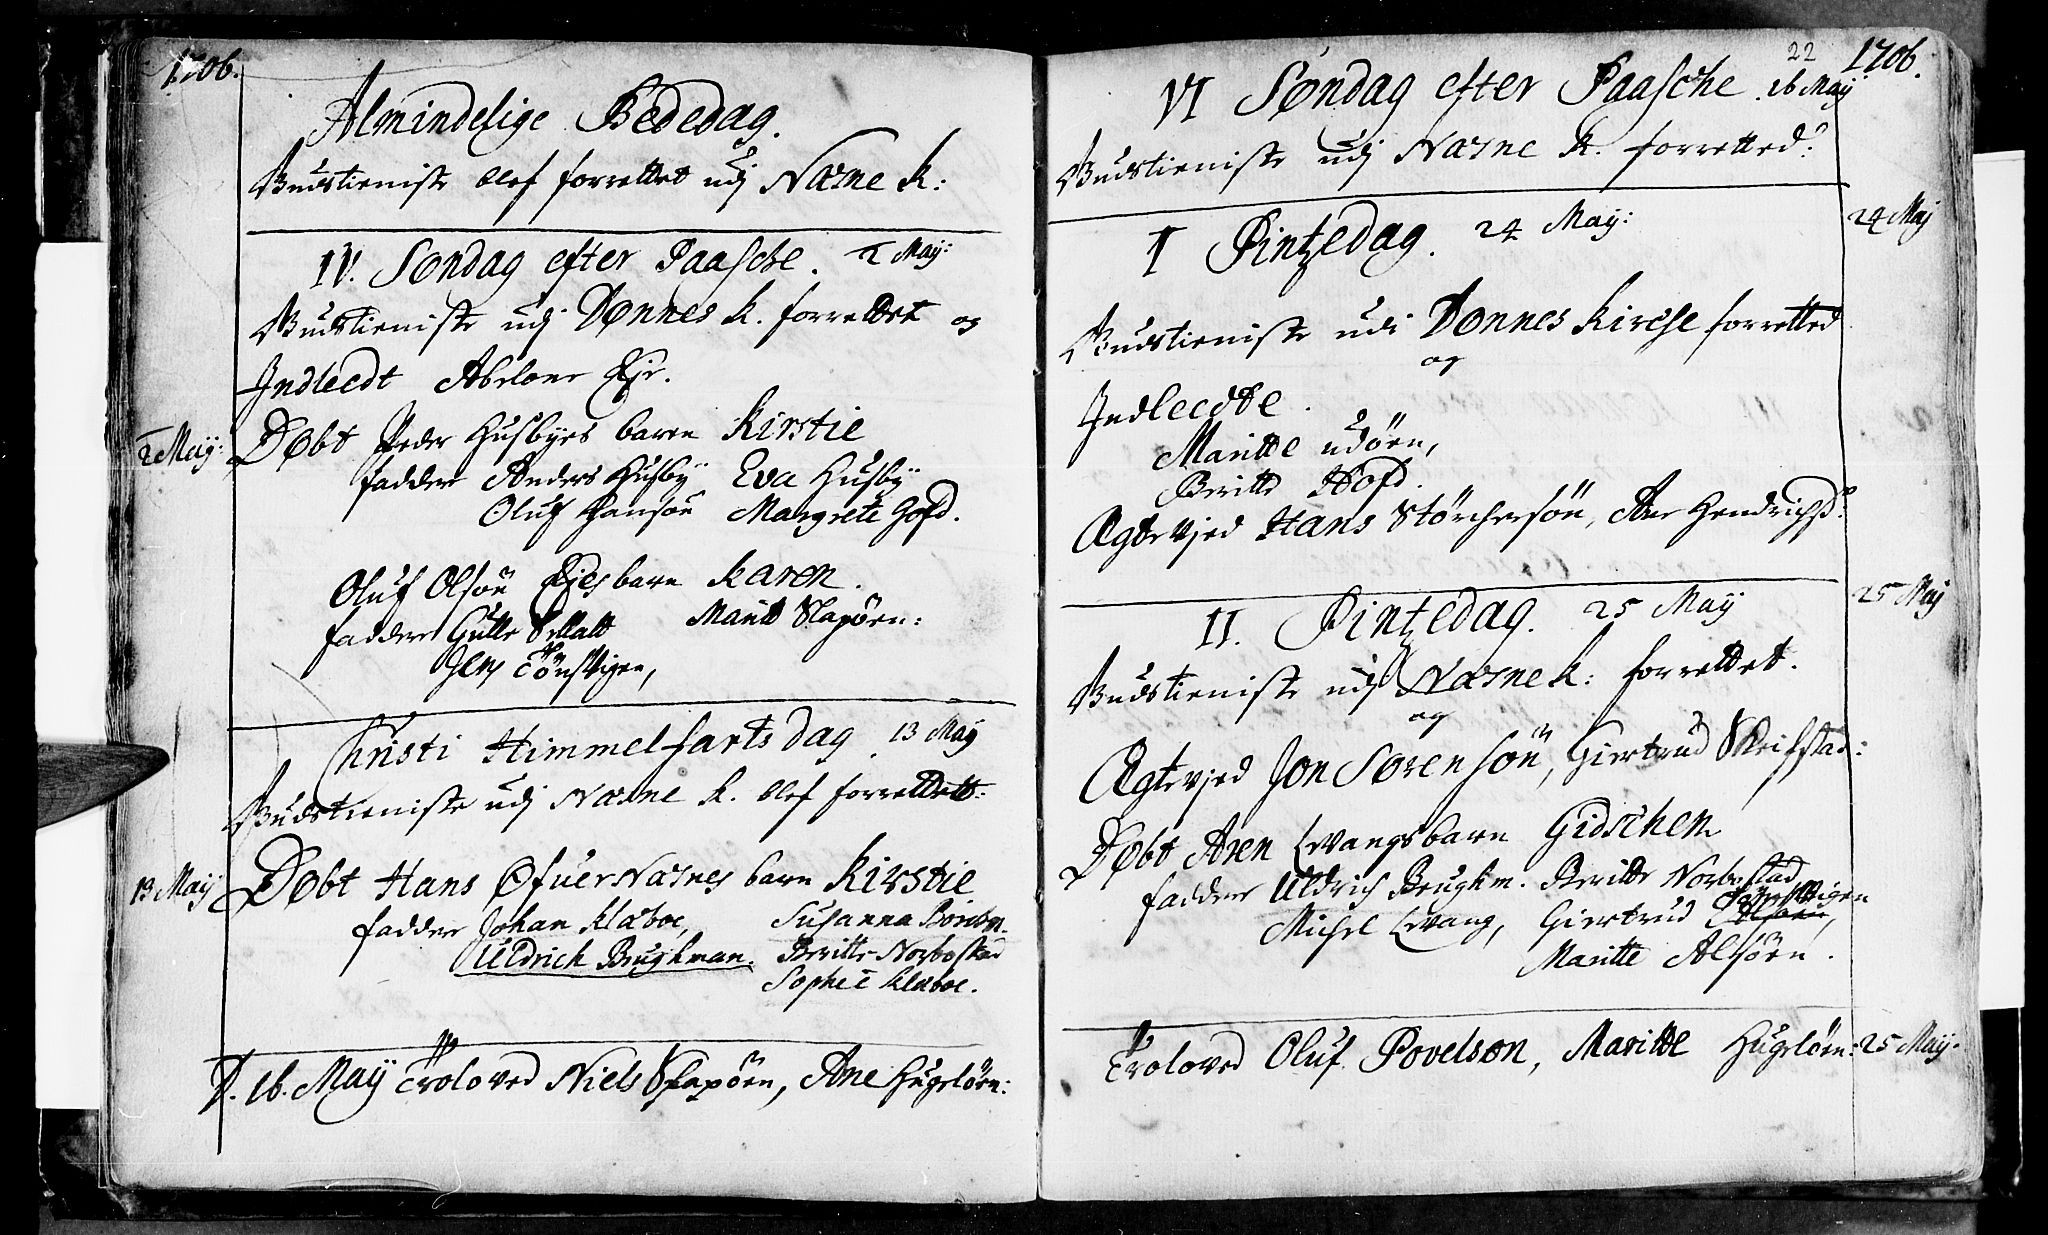 1706.
Almindelige Bededag.
Gudstieniste blef forrettet udj Næsne k:
IV. Søndag efter Paasche. 2 Maij:
Gudstieniste udj Dønnes k. forrettet og
Indleedt Abelone Eje.
2 Maij:
Døbt Peder Husbyes barn Kirstie
fadder Anders Husby Eva Husby
Oluf Hansøn Margrete Hofd.
Oluf Olsøn Ejes barn Karen.
fadder Gulle Marit Slapøen:
Jens Tønsvigen,
Christi Himmelfarts dag. 13 Maij
Gudstieniste udj Næsne k. blef forrettett:
13 Maij
Døbt Hans Øfuer Næsnes barn Kirstie
fadder Johan Klæboe, Susanna
Uldrich Brughman. Beritte Norbostad
Sophie Klæboe.
D. 16. Maij Troloved Niels Slapøen, Ane Hugeløen:
22 1706.
VI Søndag efter Paasche. 16 Maij
Gudstieniste udj Næsne k. forretted:
I Pintzedag. 24 Maij:
24 Maij
Gudstieniste udi Dønnes Kirche forretted
og
Indleedde.
Maritte udøen,
Beritte Hofd.
Ægtevjed Hans Størchersøn, Ane Hendrichsd:
II. Pintzedag. 25 Maij
25 Maij
Gudstieniste udj Næsne k: forrettet.
og
Ægtevjed Jon Sørensøn, Giertrud
Døbt Aren Levangs barn Gidschen
fadder Uldrich Brughm. Beritte Norbostad
Michel Levang, Giertrud Tønsvigen
Maritte Alsøen.
Troloved Oluf Povelsøn, Maritte Hugeløen: 25 Maij.